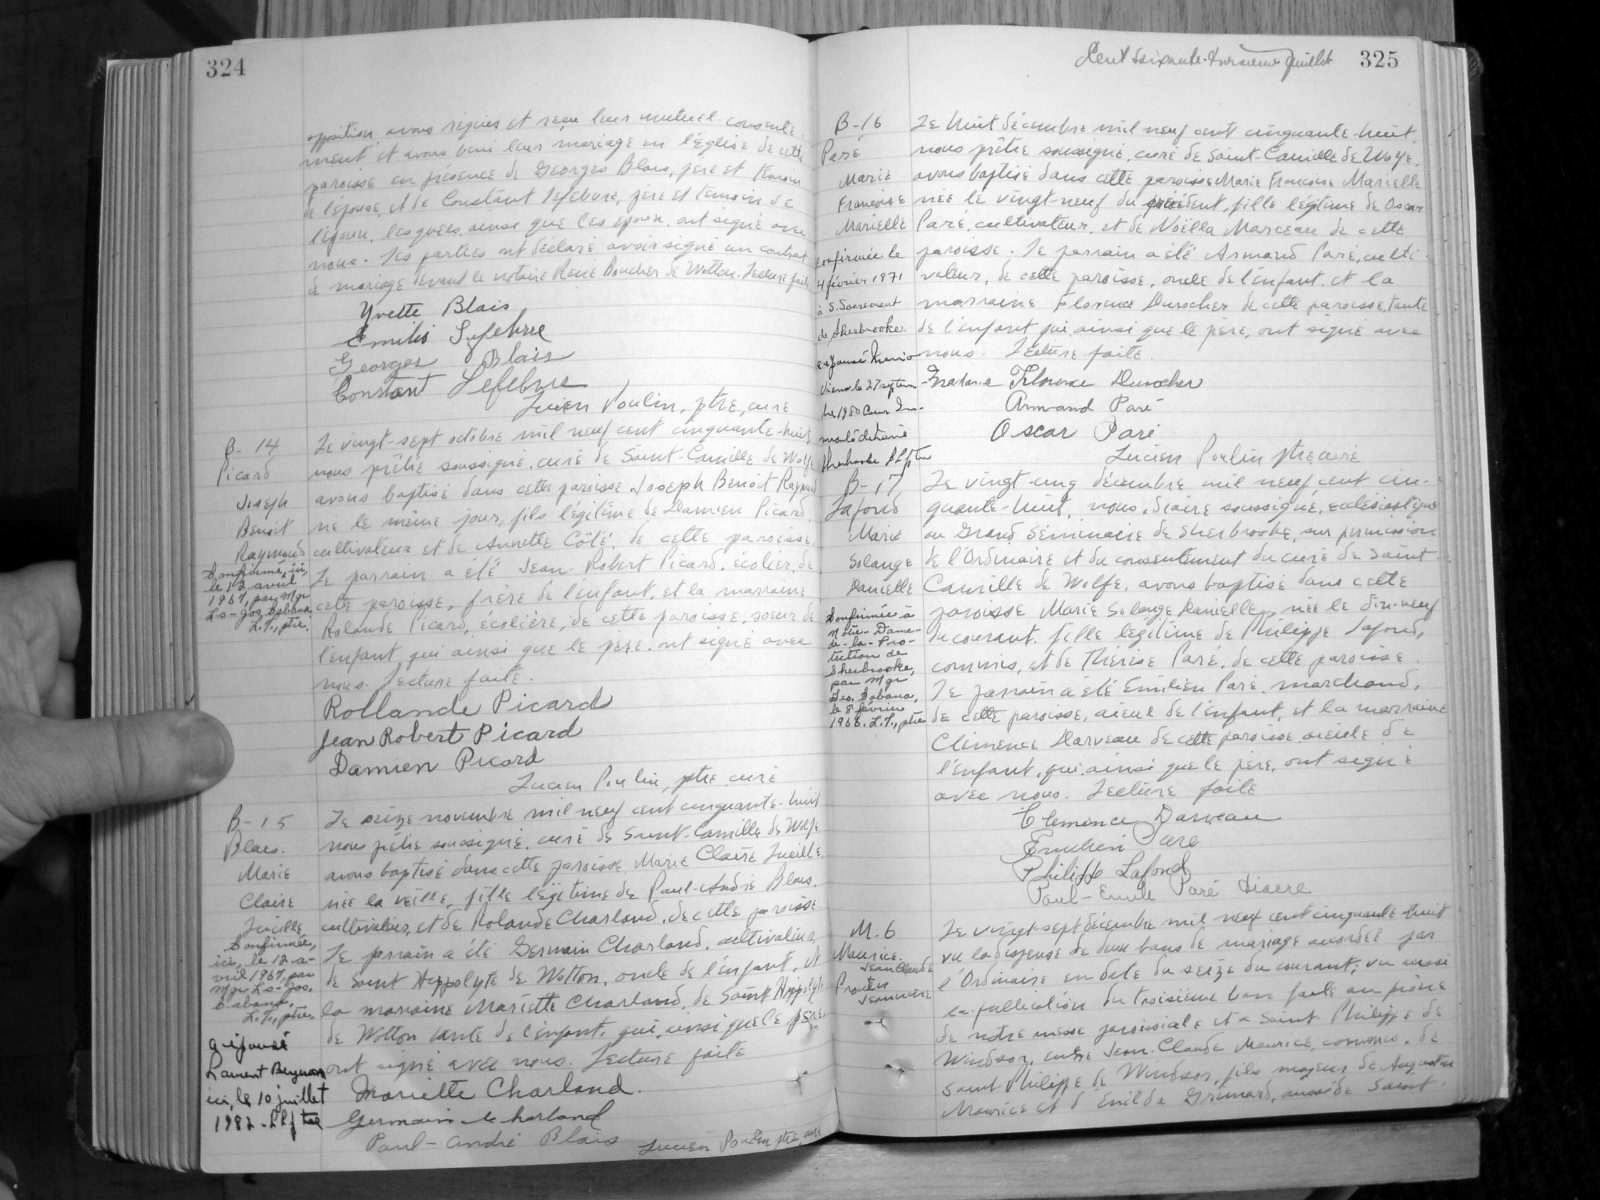 324
opposition, avons requis et reçu leur mutuel consente-
ment et avons béni leur mariage en l'église de cette
paroisse en présence de Georges Blais, père et témoin
de l'épouse, et de Constant Lefebvre, père et témoin de
l'époux, lesquels ainsi que les époux, ont signé avec
nous. Les parties ont déclaré avoir signé un contrat
de mariage devant le notaire René Boucher de Wotton. Lecture faite
Yvette Blais
Emilio Lefebvre
Georges Blais
Constant Lefebvre
Lucien Poulin, ptre, curé
B-14
Picard
Joseph
Benoit
Raymond
Confirmé, ici,
le 12 avril
1967, par Mgr
Ls-Jos. Cabana,
L.T., ptre.
Le vingt-sept octobre mil neuf cent cinquante-huit
nous prêtre soussigné, curé de Saint-Camille de Wolfe
avons baptisé dans cette paroisse Joseph Benoit Raymond
né le même jour, fils légitime de Damien Picard,
cultivateur et de Annette Côté, de cette paroisse.
Le parrain a été Jean-Robert Picard, écolier, de
cette paroisse, frère de l'enfant, et la marraine
Rolande Picard, écolière, de cette paroisse, soeur de
l'enfant qui ainsi que le père, ont signé avec
nous. Lecture faite.
Rollande Picard
Jean Robert Picard
Damien Picard
Lucien Poulin, ptre, curé
B-15
Blais.
Marie
Claire
Lucille
Confirmée,
ici, le 12 a-
vril 1967, par
Mgr Ls-Jos.
Cabana,
L.T., ptre
a épousé
Laurent
ici, le 10 juillet
1982 -
Le seize novembre mil neuf cent cinquante-huit
nous prêtre soussigné, curé de Saint-Camille de Wolfe
avons baptisé dans cette paroisse Marie Claire Lucille
née la veille, fille légitime de Paul-André Blais,
cultivateur, et de Rolande Charland, de cette paroisse
Le parrain a été Germain Charland, cultivateur,
de Saint Hippolyte de Wotton, oncle de l'enfant, et
la marraine Mariette Charland, de Saint Hippolyte
de Wotton tante de l'enfant, qui, ainsi que le père
ont signé avec nous. Lecture faite
Mariette Charland.
Germain Charland
Paul-André Blais
Lucien Poulin ptre, curé
Cent Soixante-troisième feuillet
325
B-16
Paré
Marie
Françoise
Marielle
confirmée le
4 février 1971
à S. Sacrement
de Sherbrooke
a épousé
le 27 septem-
bre 1980
Sherbrooke
Le huit décembre mil neuf cent cinquante-huit,
nous prêtre soussigné, curé de Saint-Camille de Wolfe,
avons baptisé dans cette paroisse Marie Françoise Marielle
née le vingt-neuf du précédent, fille légitime de Oscar
Paré, cultivateur, et de Noëlla Marceau de cette
paroisse. Le parrain a été Armand Paré, culti-
vateur, de cette paroisse, oncle de l'enfant et la
marraine Florence Durocher de cette paroisse, tante
de l'enfant qui, ainsi que le père, ont signé avec
nous. Lecture faite.
Madame Florence Durocher
Armand Paré
Oscar Paré
Lucien Poulin ptre curé
B-17
Lafond
Marie
Solange
Danielle
Confirmée à
N otre-Dame-
de-la-Pro-
tection de
Sherbrooke,
par Mgr
Geo. Cabana,
le 8 février
1968. L.T., ptre
Le vingt-cinq décembre mil neuf cent cin-
quante-huit, nous, diacre soussigné, ecclésiastique
au Grand Séminaire de Sherbrooke, sur permission
de l'Ordinaire et du consentement du curé de Saint
Camille de Wolfe, avons baptisé dans cette
paroisse Marie Solange Danielle, née le dix-neuf
du courant, fille légitime de Philippe Lafond,
commis, et de Thérèse Paré, de cette paroisse.
Le parrain a été Emilien Paré, marchand,
de cette paroisse, aïeul de l'enfant, et la marraine
Clémence Darveau de cette paroisse aïeule de
l'enfant, qui, ainsi que le père, ont signé
avec nous. Lecture faite
Clemence Darveau
Emilien Paré
Philippe Lafond
Paul-Emile Paré diacre
M. 6
Maurice
Jean Claude
Le vingt-sept décembre mil neuf cent cinquante-huit
vu la dispense de deux bans de mariage accordée par
l'Ordinaire en date du seize du courant; vu aussi
la publication du troisième ban faite au prône
de notre messe paroissiale et à Saint Philippe de
Windsor, entre Jean-Claude Maurice, commis, de
Saint Philippe de Windsor, fils majeur de Augustin
Maurice et d'Enilda Grimard, aussi de Saint